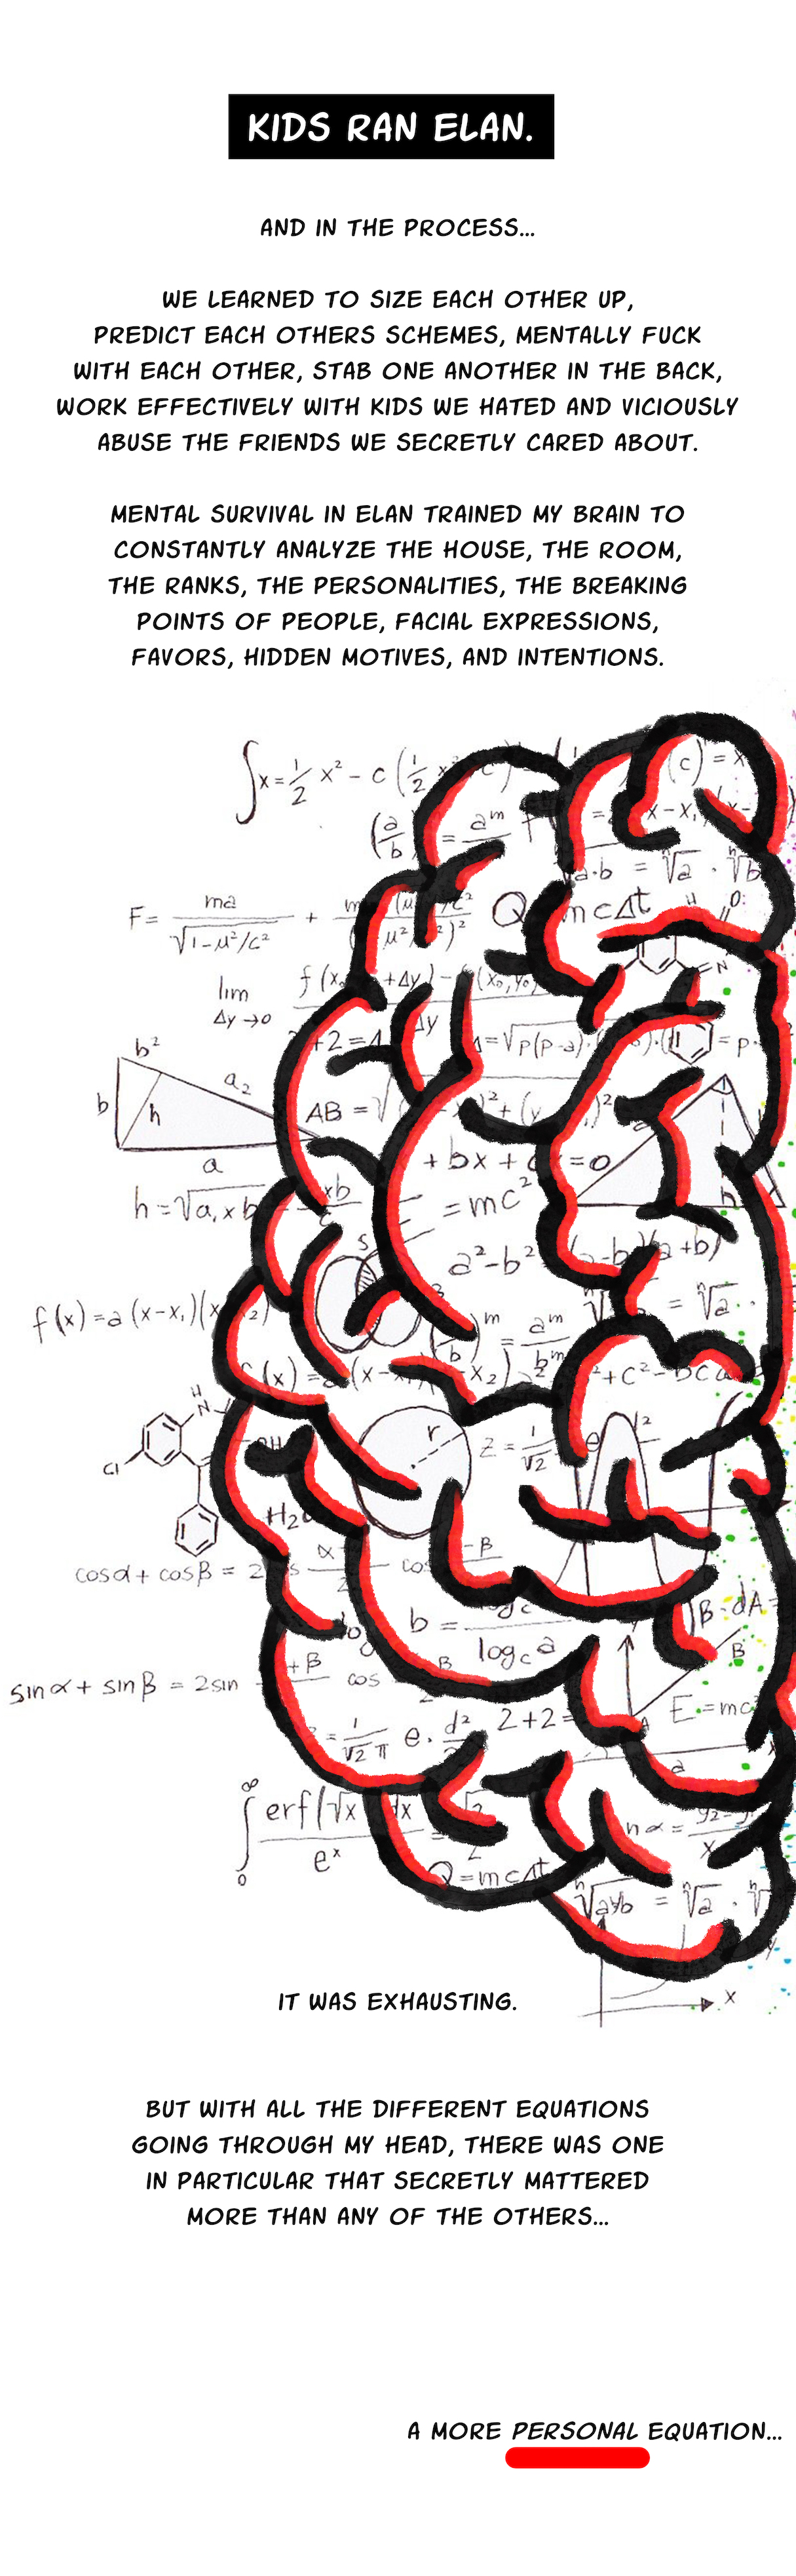 KIDS RAN ELAN.
AND IN THE PROCESS...
WE LEARNED TO SIZE EACH OTHER UP,
PREDICT EACH OTHERS SCHEMES, MENTALLY FUCK
WITH EACH OTHER, STAB ONE ANOTHER IN THE BACK,
WORK EFFECTIVELY WITH KIDS WE HATED AND VICIOUSLY
ABUSE THE FRIENDS WE SECRETLY CARED ABOUT.
MENTAL SURVIVAL IN ELAN TRAINED MY BRAIN TO
CONSTANTLY ANALYZE THE HOUSE, THE ROOM,
THE RANKS, THE PERSONALITIES, THE BREAKING
POINTS OF PEOPLE, FACIAL EXPRESSIONS,
FAVORS, HIDDEN MOTIVES, AND INTENTIONS.
∫x = 1/2 x² - c (1/2
(a/b) = aᵐ
a·b = ⁿ√a · ⁿ√b
F = ma / √1-μ²/c² +
Q mcΔt
lim Δy→0
b²
a₂
b
h
a
AB = √
+ bx + =0
h = √a₁ x b
= mc²
a²-b² (a+b)
f(x) = a (x-x₁)(x
r
z = 1/√2
Cl
H
N
H₂
cosα + cosβ = 2
b = logc a
B · dA
B
sinα + sinβ = 2sin
cos
= 1/√2π e · d²
2+2=
E = mc
∫₀^∞ erf(√x dx / eˣ
Q = mcΔt
= ⁿ√a · ⁿ√
x
IT WAS EXHAUSTING.
BUT WITH ALL THE DIFFERENT EQUATIONS
GOING THROUGH MY HEAD, THERE WAS ONE
IN PARTICULAR THAT SECRETLY MATTERED
MORE THAN ANY OF THE OTHERS...
A MORE PERSONAL EQUATION...